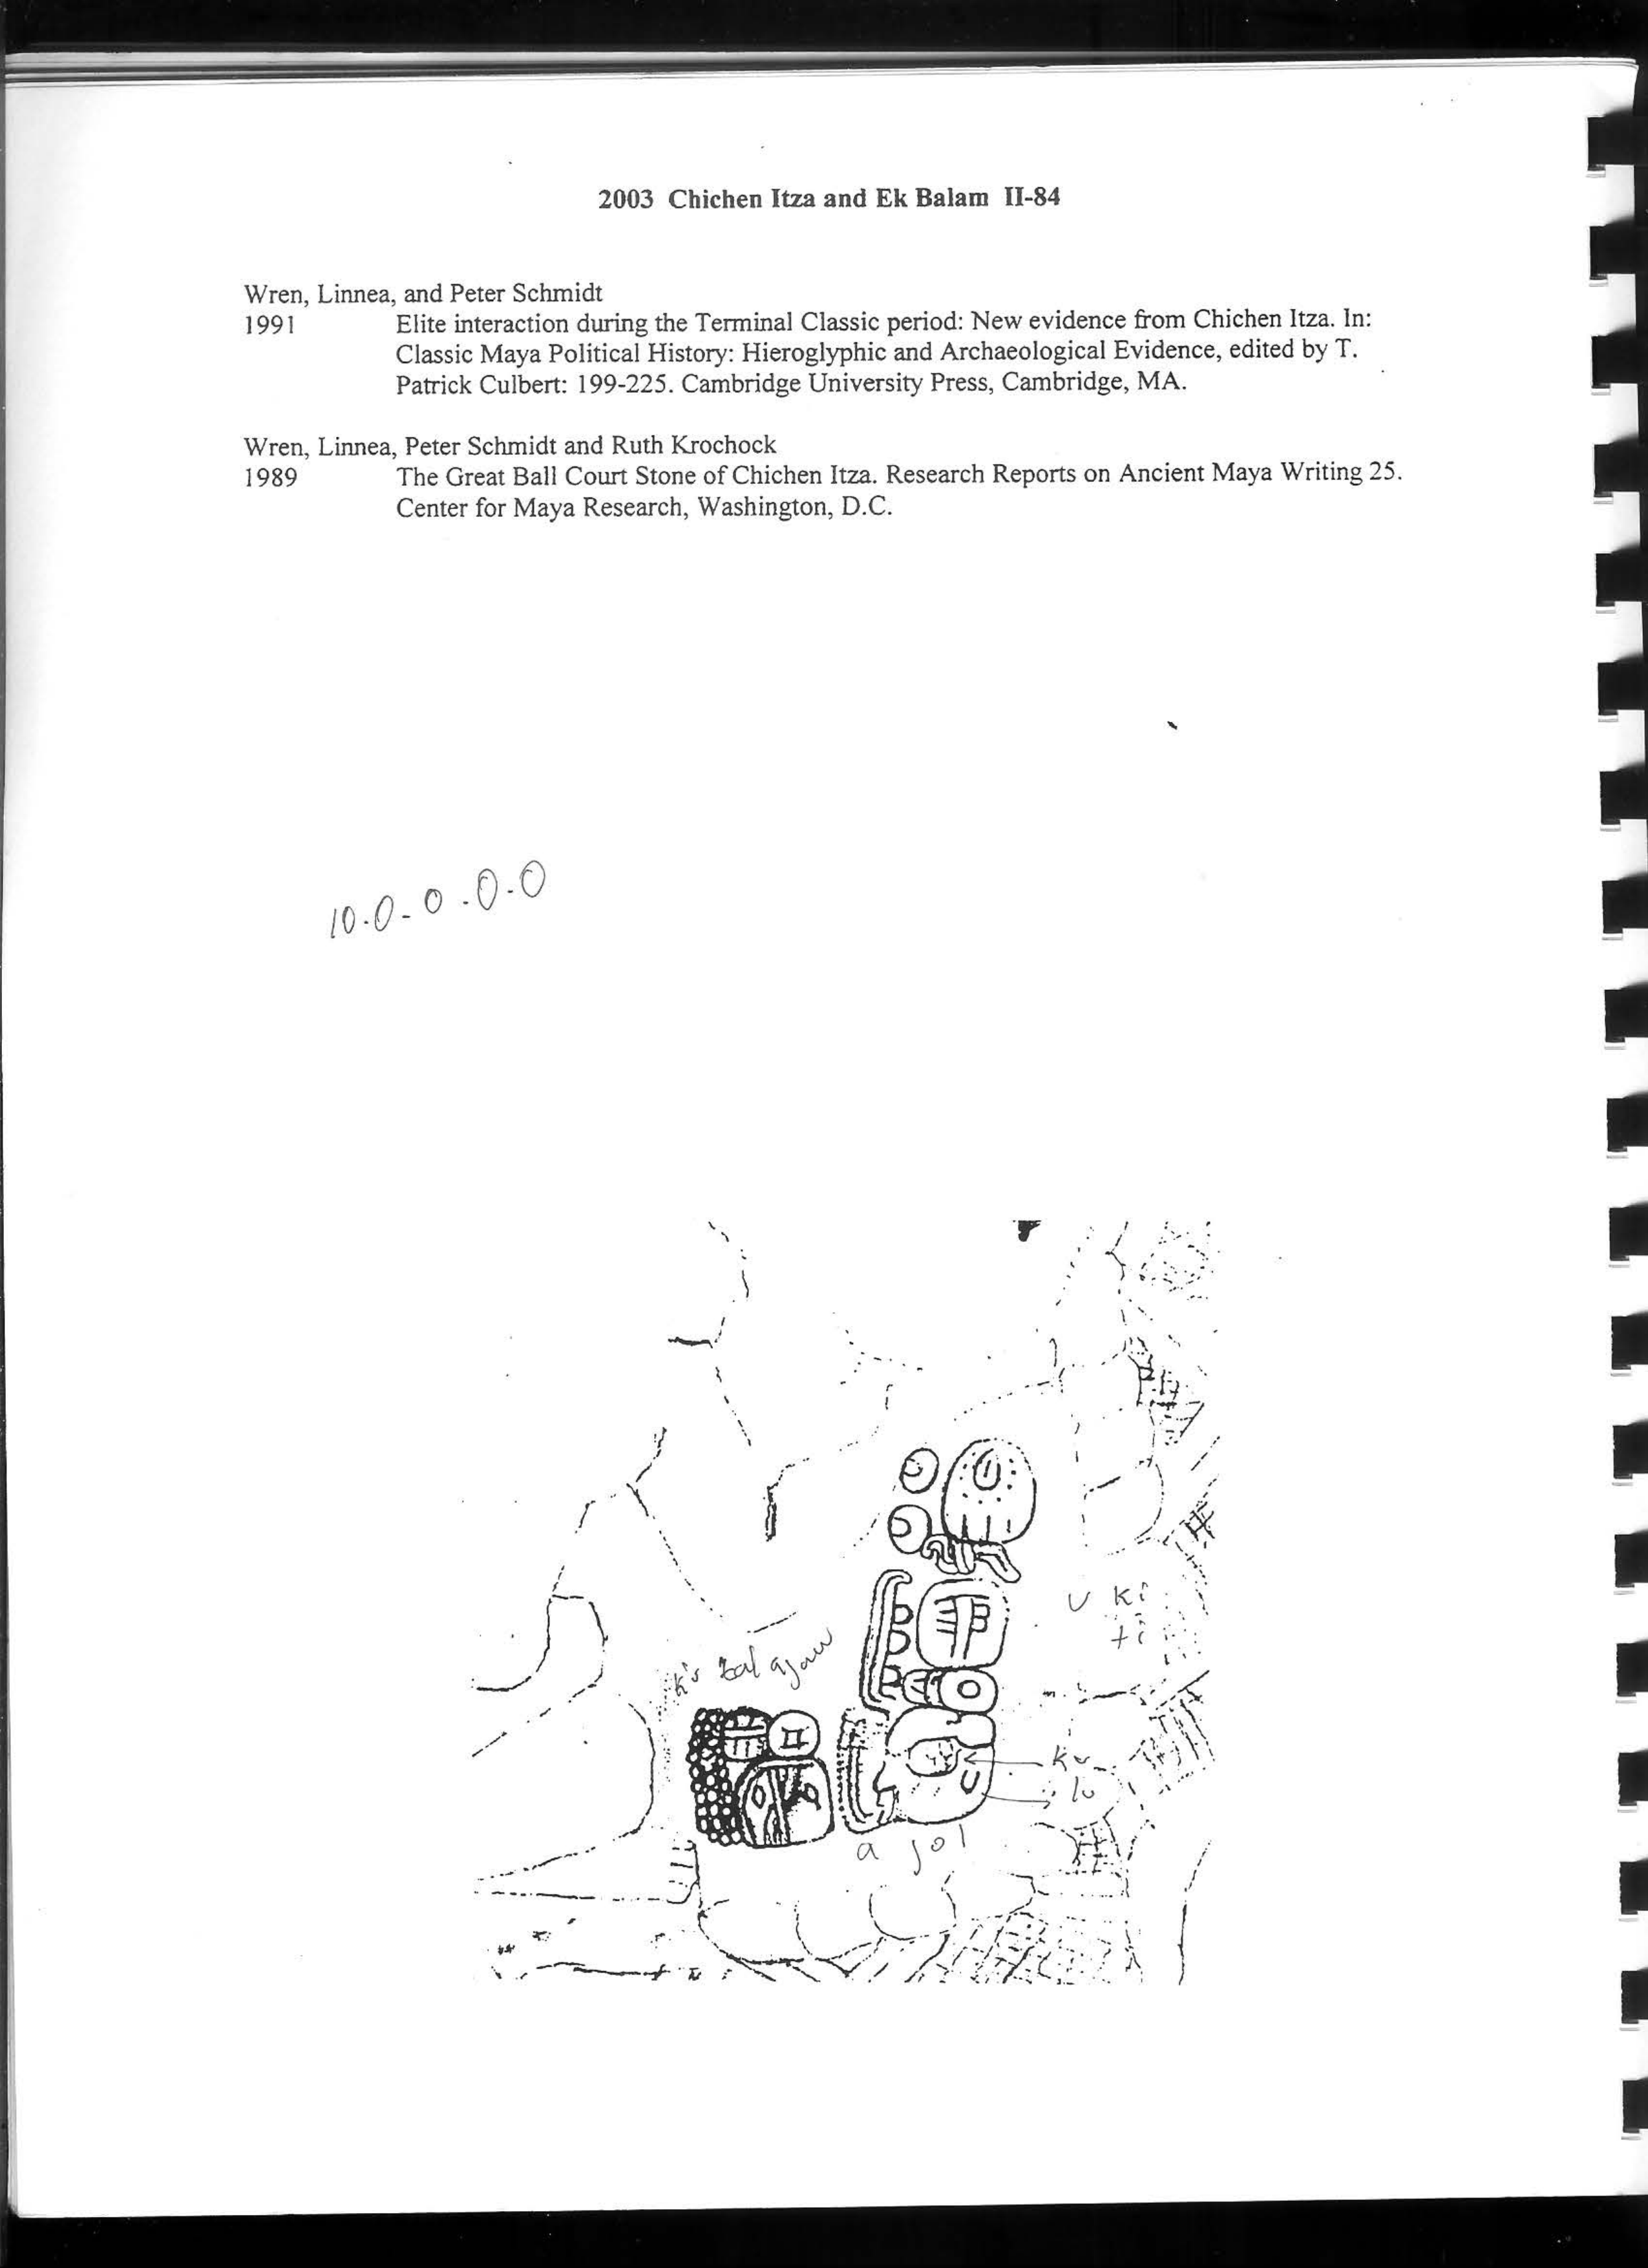 2003 Chichen Itza and Ek Balam II-84
Wren, Linnea, and Peter Schmidt
1991 Elite interaction during the Terminal Classic period: New evidence from Chichen Itza. In:
Classic Maya Political History: Hieroglyphic and Archaeological Evidence, edited by T.
Patrick Culbert: 199-225. Cambridge University Press, Cambridge, MA.
Wren, Linnea, Peter Schmidt and Ruth Krochock
1989 The Great Ball Court Stone of Chichen Itza. Research Reports on Ancient Maya Writing 25.
Center for Maya Research, Washington, D.C.
10.0.0.0.0
U ki
ti
ajaw
ku
lu
a jol